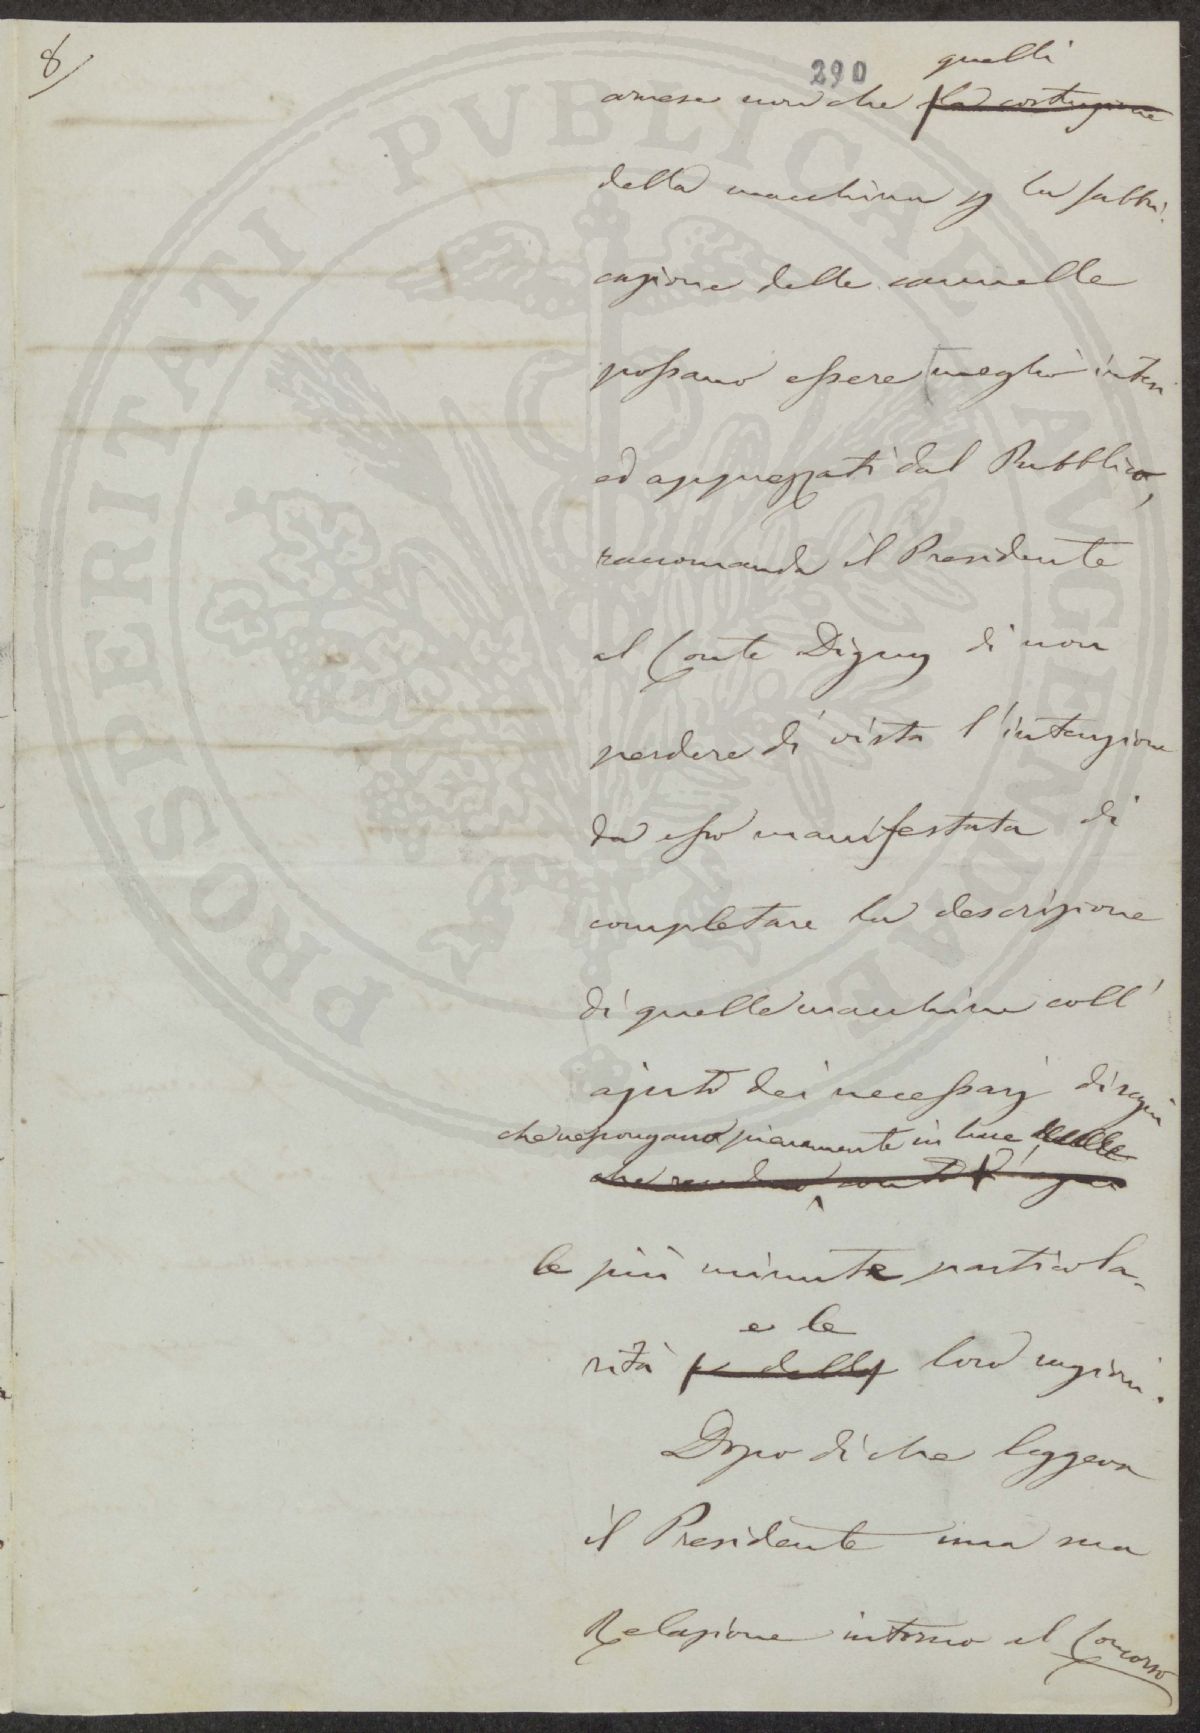 8/
290
quelli
arnese non che la costruzione
della macchina p la fabbri-
cazione delle cannelle
possano essere meglio intesi
ed apprezzati dal Pubblico,
raccomanda il Presidente
al Conte Digny di non
perdere di vista l'intenzione
da esso manifestata di
completare la descrizione
di quelle macchine coll'
ajuto dei necessarj disegni
che ne pongano pienamente in luce
che rendano conto d'ogni
le più minute particola-
e le
rità e delle loro ragioni.
Dopo di che leggeva
il Presidente una sua
Relazione intorno al Concorso
PROSPERITATI PVBLICAE AVGENDAE